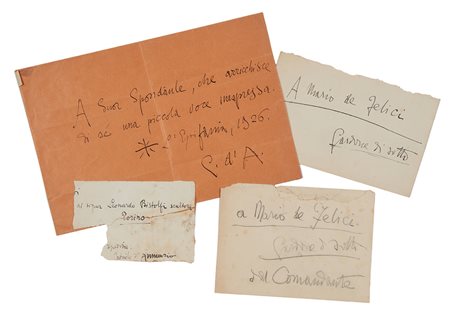 A Suor Spondante, che arrochisce
di se una piccola voce inespressa.
Epifania, 1926.
G. d'A.
A Mario de Felici
Gardone di sotto
al signor Leonardo Bistolfi scultore
Torino
Annunzio
a Mario de Felici
Gardone di sotto
del Comandante